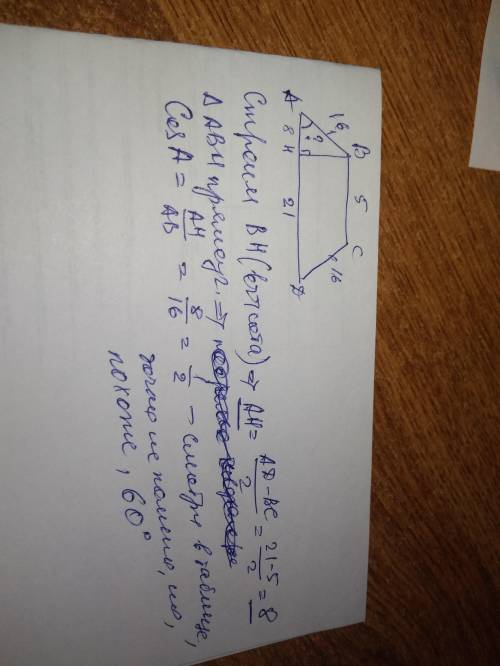 16 B 5 C
A 8 ? H 21 16 D
Строим BH (высота) ⇒ AH = AD - BC / 2 = 21-5 / 2 = 8
Δ ABH прямоуг. ⇒
Cos A = AH / AB = 8 / 16 = 1 / 2 – смотрю в таблице,
точно не помню, но,
похоже, 60°